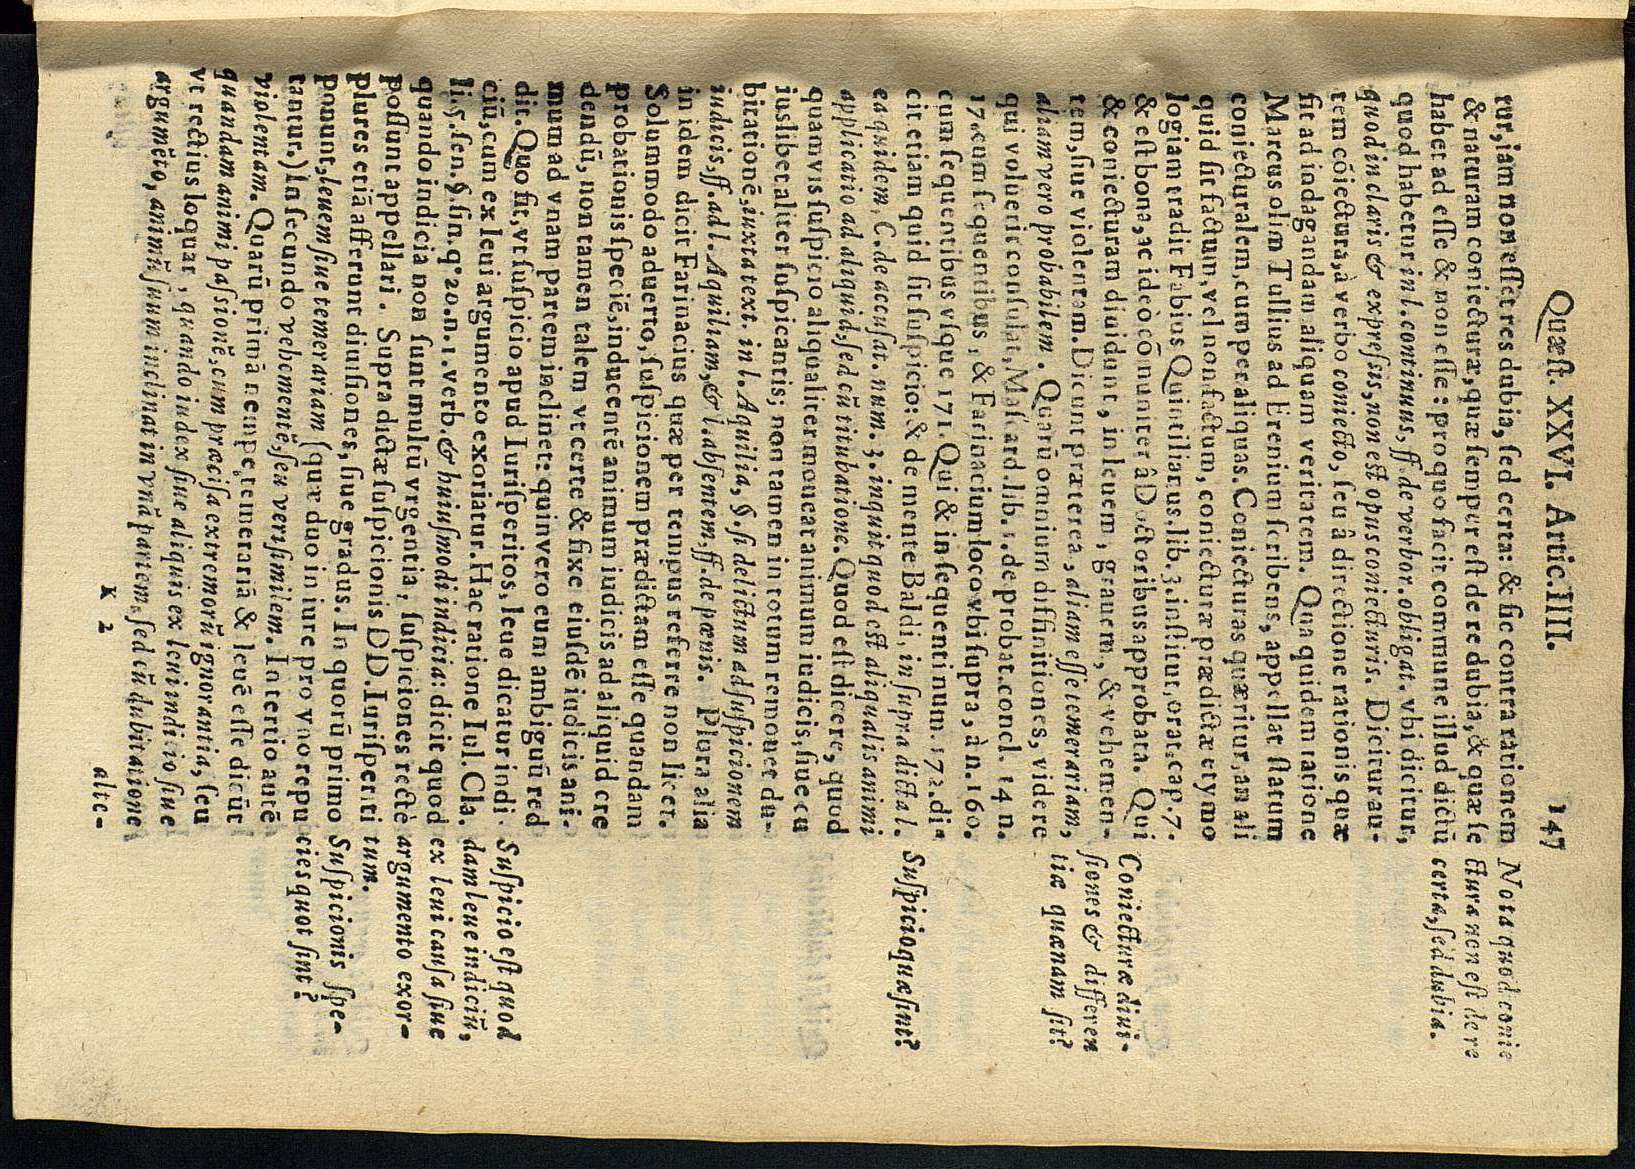 Quæst. XXVI. Artic. IIII. 147
tur, iam non esset res dubia, sed certa: & sic contra rationem
& naturam coniecturæ, quæ semper est de re dubia, & quæ se
habet ad esse & non esse: pro quo facit commune illud dictū
quod habetur in l. continuus, ff. de verbor. obligat. vbi dicitur,
quod in claris & expressis, non est opus coniecturis. Dicitur au-
tem cōiectura, à verbo coniecto, seu â directione rationis quæ
fit ad indagandam aliquam veritatem. Qua quidem ratione
Marcus olim Tullius ad Erenium scribens, appellat statum
coniecturalem, cum per aliquas Coniecturas quæritur, an ali
quid sit factum, vel non factum, coniecturæ prædictæ etymo
logiam tradit Fabius Quintilianus, lib. 3. institut, orat. cap. 7.
& est bona, ac ideò cōmuniter â Doctoribus approbata. Qui
& coniecturam diuidunt, in leuem, grauem, & vehemen-
tem, siue violentam. Dicunt præterea, aliam esse temerariam,
aliam vero probabilem. Quarū omnium diffinitiones, videre
qui voluerit consulat, Mascard. lib. 1. de probat. concl. 14 n.
17. cum sequentibus, & Farinacium loco vbi supra, à n. 160.
cum sequentibus vsque 171. Qui & in sequenti num. 172. di-
cit etiam quid sit suspicio: & de mente Baldi, in supra dicta l.
ea quidem, C. de accusat. num. 3. inquit quod est aliqualis animi
applicatio ad aliquid, sed cū titubatione. Quod est dicere, quod
quamvis suspicio aliqualiter moueat animum iudicis, siue cu
iuslibet aliter suspicantis; non tamen in totum remouet du-
bitationē, iuxta text. in l. Aquilia, §. si delictum ad suspicionem
iudicis, ff. ad l. Aquilam, & l. absentem. ff. de pænis. Plura alia
in idem dicit Farinacius quæ per tempus referre non licet.
Solummodo aduerto, suspicionem prædictam esse quandam
probationis speciē, inducentē animum iudicis ad aliquid cre
dendū, non tamen talem vt certe & fixe eiusdē iudicis ani-
mum ad vnam partem inclinet: quinvero eum ambiguū red
dit. Quo fit, vt suspicio apud Iurisperitos, leue dicatur indi-
ciū, cum ex leui argumento exoriatur. Hac ratione Iul. Cla.
li. 5. sen. §. fin. q° 20. n. 1. verb. & huiusmodi indicia: dicit quod
quando indicia non sunt multū vrgentia, suspiciones rectè
possunt appellari. Supra dictæ suspicionis DD. Iurisperiti
plures etiā afferunt diuisiones, siue gradus. In quorū primo
ponunt, leuem siue temerariam (quæ duo in iure pro vno repu
tantur,) In secundo vehementē, seu verisimilem. In tertio autē
violentam. Quarū primā nempe, temerariā & leuē esse dicūt
quandam animi passionē, cum præcisa extremorū ignorantia, seu
vt rectius loquar, quando iudex siue aliquis ex leui indicio siue
argumēto, animū suum inclinat in vnā partem, sed cū dubitatione
K 2 alte-
Nota quod conie
ctura non est de re
certa, sed dubia.
Coniecturæ diui-
siones & differen
tiæ quænam sit?
Suspicio quæ sint?
Suspicio est quod
dam leue indiciū,
ex leui causa siue
argumento exor-
tum.
Suspicionis spe-
cies quot sint?